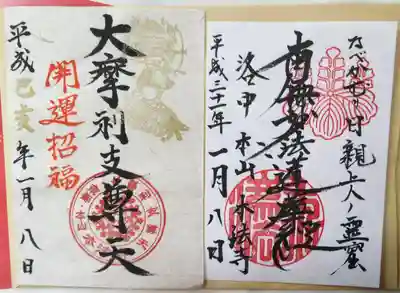 なべかむり日親上人ノ靈
南無妙法蓮華経
洛中 本山 本法寺
平成三十一年一月八日
大摩利支尊天
開運招福
平成己亥年一月八日